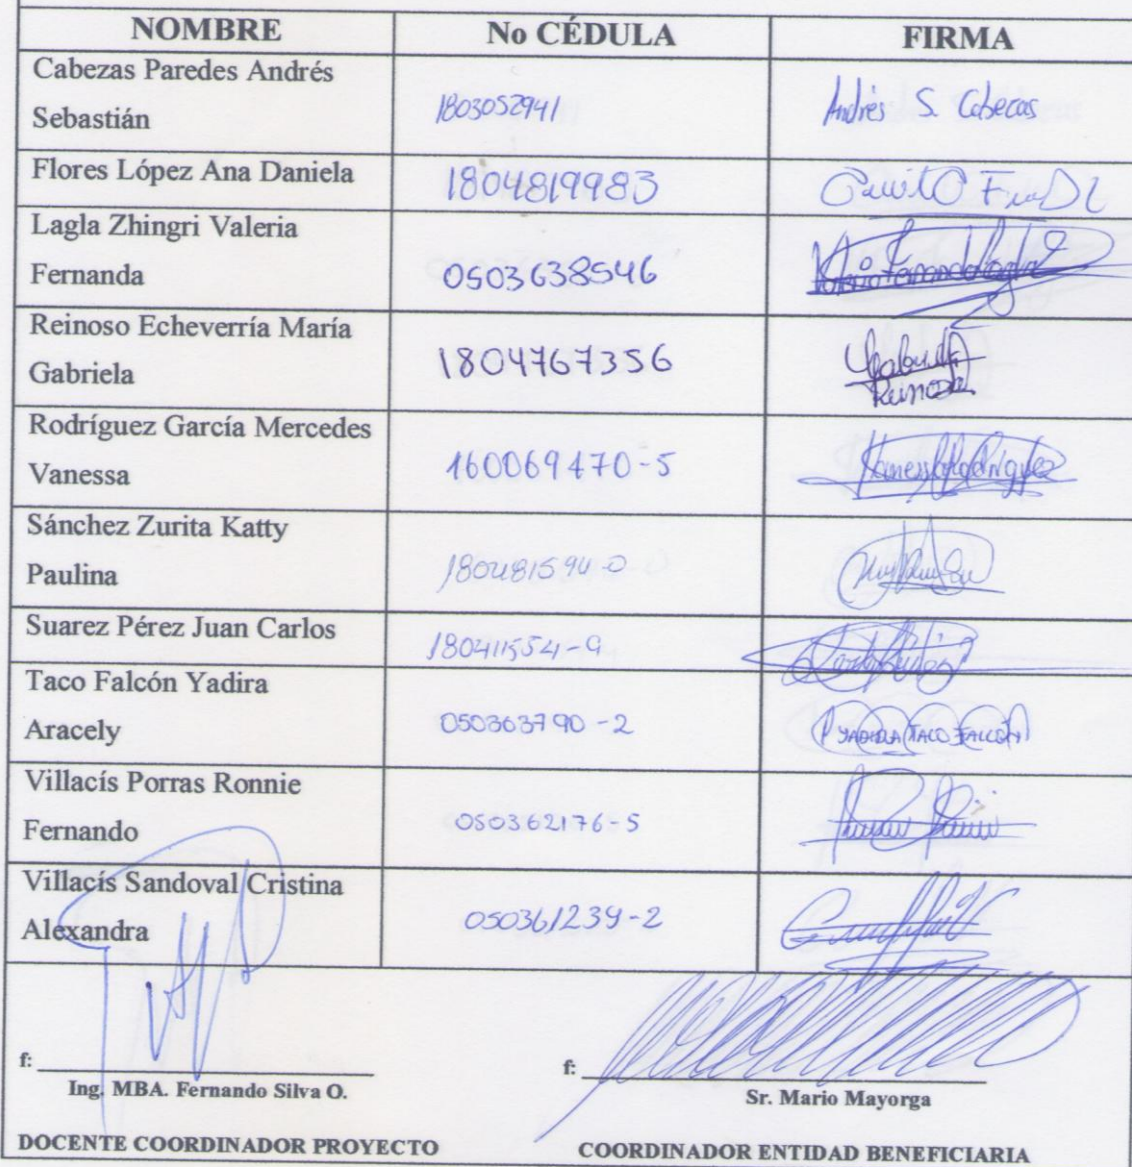 NOMBRE No CÉDULA FIRMA
Cabezas Paredes Andrés
Sebastián 1803052941 Andrés S. Cabecas
Flores López Ana Daniela 1804819983
Lagla Zhingri Valeria
Fernanda 0503638546
Reinoso Echeverría María
Gabriela 1804767356 Gabriela
Reinoso
Rodríguez García Mercedes
Vanessa 160069470-5 Vanessa Rodríguez
Sánchez Zurita Katty
Paulina 180481594-0
Suarez Pérez Juan Carlos 180411554-9
Taco Falcón Yadira
Aracely 050363790-2 YADIRA TACO FALCÓN
Villacís Porras Ronnie
Fernando 050362176-5
Villacís Sandoval Cristina
Alexandra 050361239-2
f: f:
Ing. MBA. Fernando Silva O. Sr. Mario Mayorga
DOCENTE COORDINADOR PROYECTO COORDINADOR ENTIDAD BENEFICIARIA